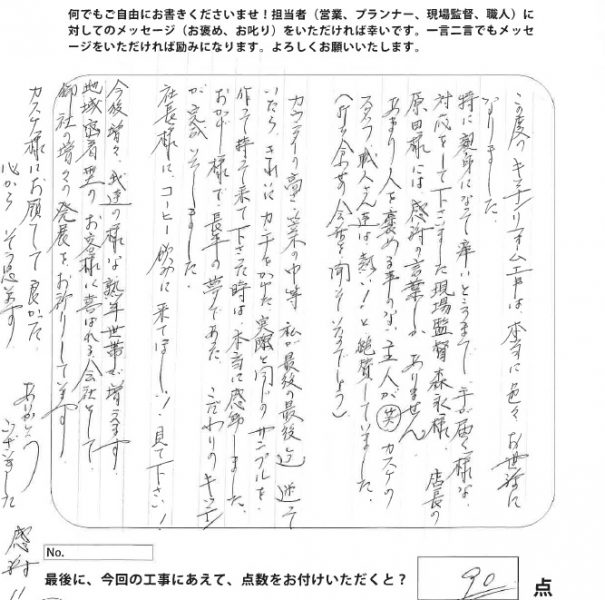 何でもご自由にお書きくださいませ！担当者（営業、プランナー、現場監督、職人）に
対してのメッセージ（お褒め、お叱り）をいただければ幸いです。一言二言でもメッセ
ージをいただければ励みになります。よろしくお願いいたします。
この度のキッチンリフォーム工事は、本当に色々お世話に
なりました。
特に親身になって痒いところまで手が届く様な
対応をして下さいました現場監督森永様、店長の
原田様には感謝の言葉しかありません
あまり人を褒める事のない主人が(笑)カスケの
スタッフ、職人さん達は熱い！と絶賛していました。
カウンターの
いたら きれいにカンナをかけた実際と同じのサンプルを
作って持って来て下さった時は、本当に感動しました。
おかげ様で長年の夢であった こだわりのキッチン
が完成いたしました
社長様に、コーヒー飲みに来てほしい！見て下さい！
今後増々 我達の様な熟年世帯が増えます
地域密着型のお客様に喜ばれる会社として
御社の増々の発展をお祈りしています。
カスケ様にお願いして良かった。
心から そう思います
ありがとう
ございました 感謝!!
No.
最後に、今回の工事にあえて、点数をお付けいただくと？ 90 点